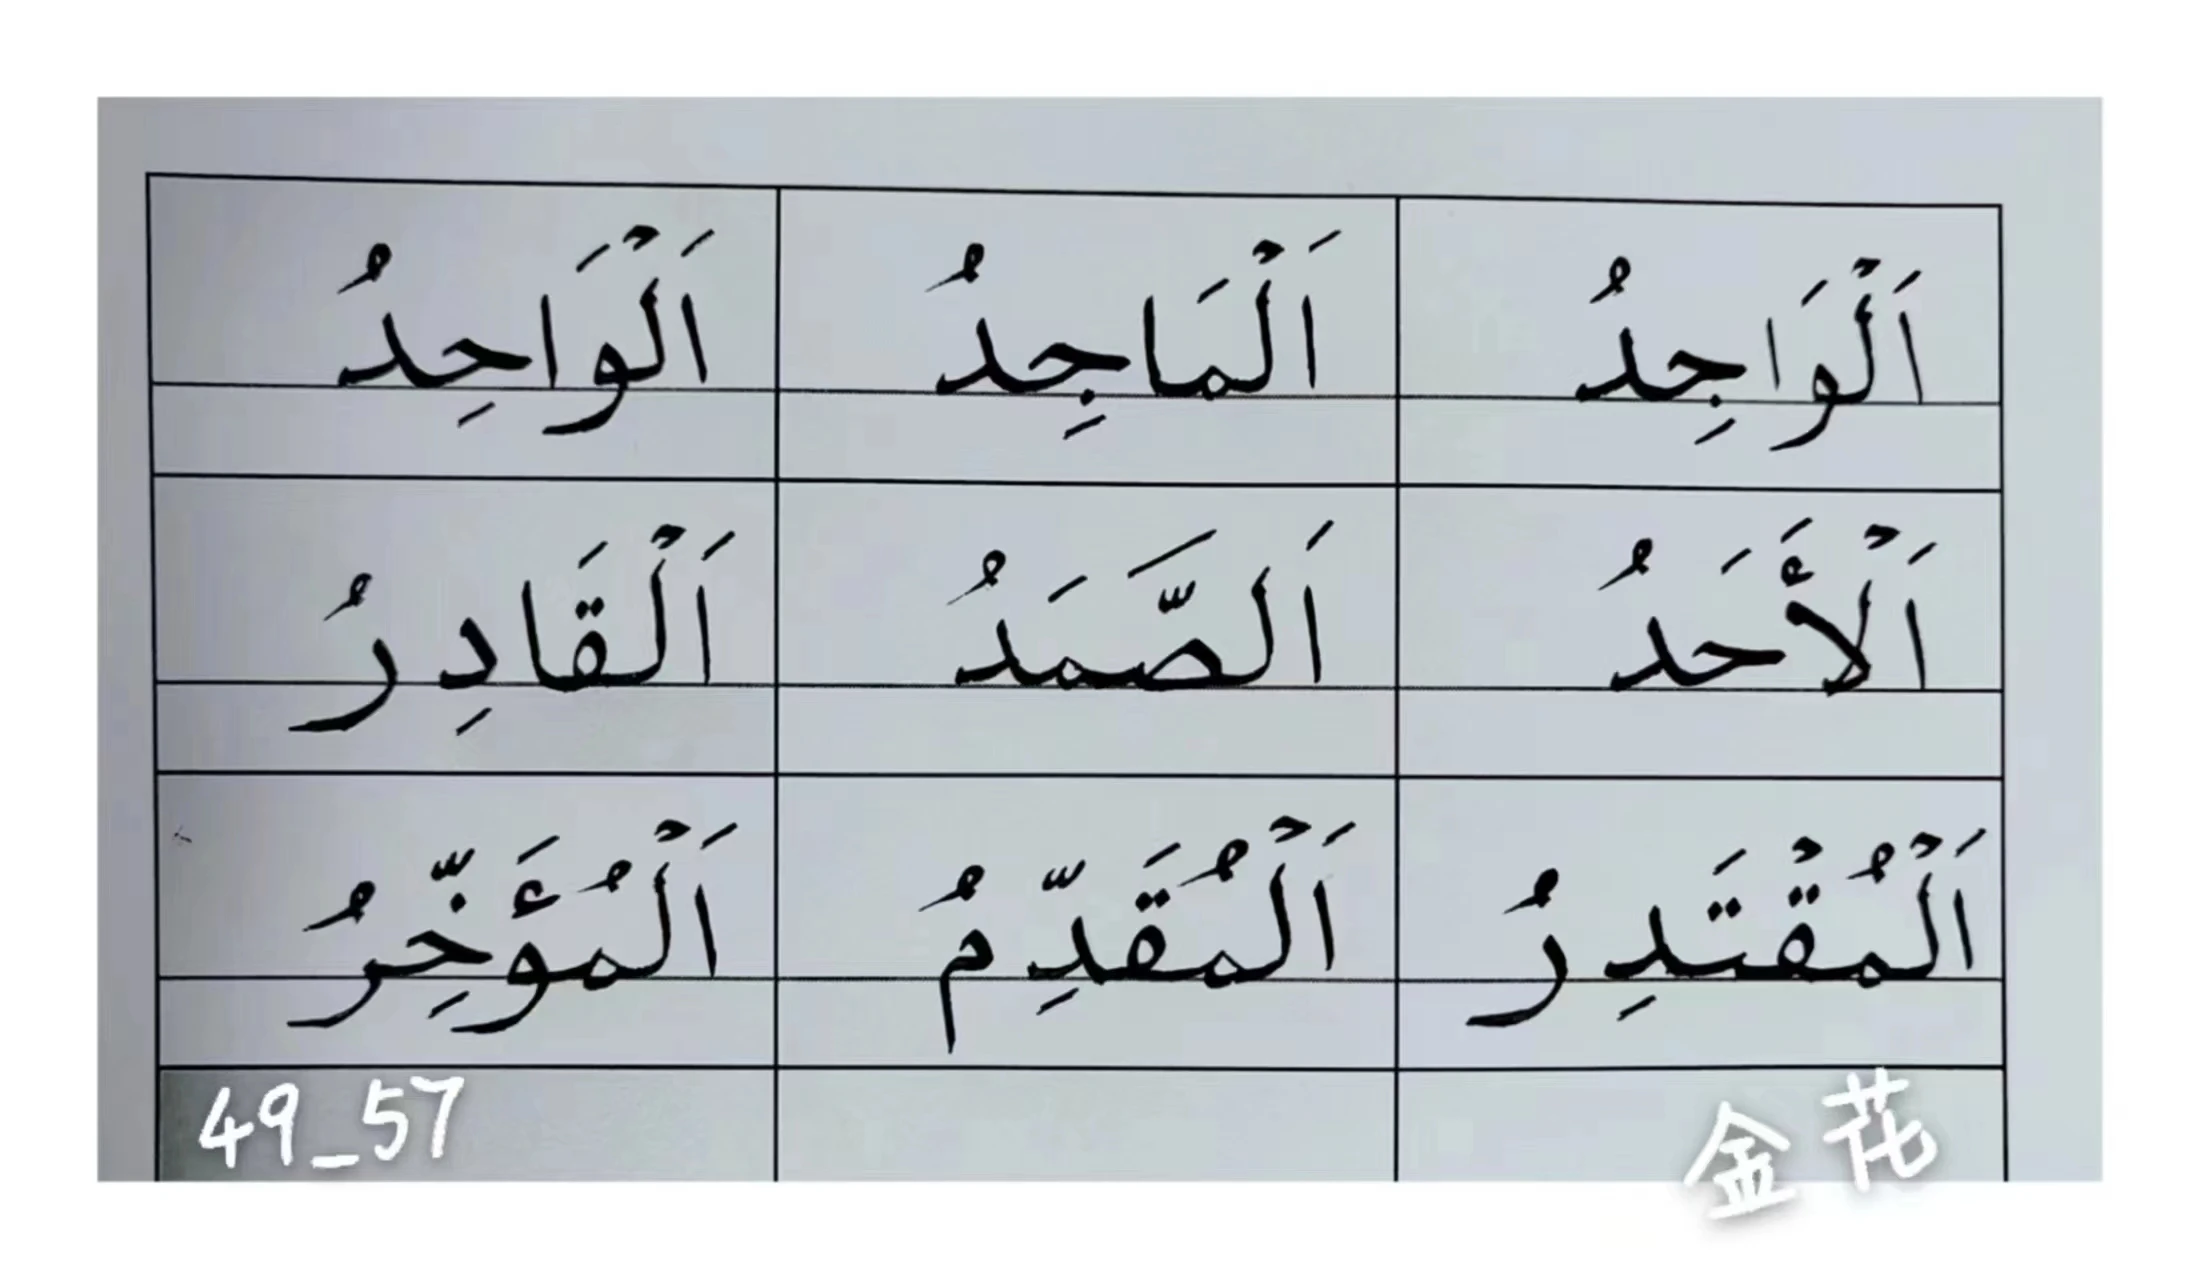 اَلْوَاجِدُ اَلْمَاجِدُ اَلْوَاحِدُ
اَلْأَحَدُ اَلصَّمَدُ اَلْقَادِرُ
اَلْمُقْتَدِرُ اَلْمُقَدِّمُ اَلْمُؤَخِّرُ
49_57 金花